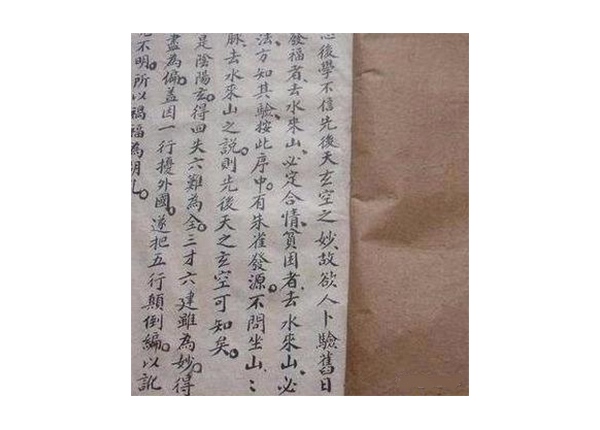 心後學不信先後天玄空之妙故欲人卜驗舊日
發福者去水來山必定合情貧困者去水來山必
法方知其驗按此序中有朱雀發源不問坐山〻
脉去水來山之說則先後天之玄空可知矣
是陰陽玄得四失六難為全三才六建雖為妙得
盡為偏蓋因一行擾外國遂把五行顛倒編以訛
不明所以禍福為胡亂